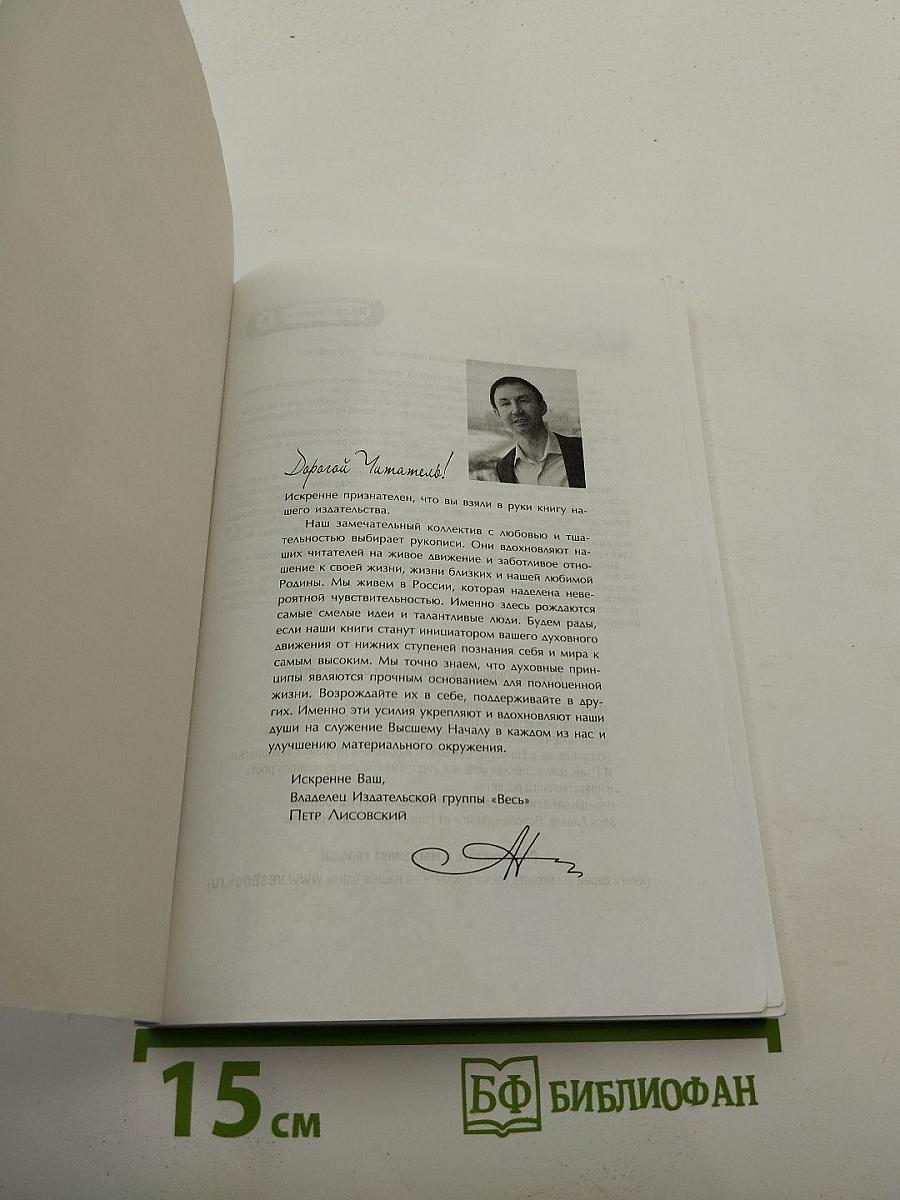 Дорогой Читатель!
Искренне признателен, что вы взяли в руки книгу на-
шего издательства.
Наш замечательный коллектив с любовью и тща-
тельностью выбирает рукописи. Они вдохновляют на-
ших читателей на живое движение и заботливое отно-
шение к своей жизни, жизни близких и нашей любимой
Родины. Мы живем в России, которая наделена неве-
роятной чувствительностью. Именно здесь рождаются
самые смелые идеи и талантливые люди. Будем рады,
если наши книги станут инициатором вашего духовного
движения от нижних ступеней познания себя и мира к
самым высоким. Мы точно знаем, что духовные прин-
ципы являются прочным основанием для полноценной
жизни. Возрождайте их в себе, поддерживайте в дру-
гих. Именно эти усилия укрепляют и вдохновляют наши
души на служение Высшему Началу в каждом из нас и
улучшению материального окружения.
Искренне Ваш,
Владелец Издательской группы «Весь»
Петр Лисовский
15 см
БФ БИБЛИОФАН